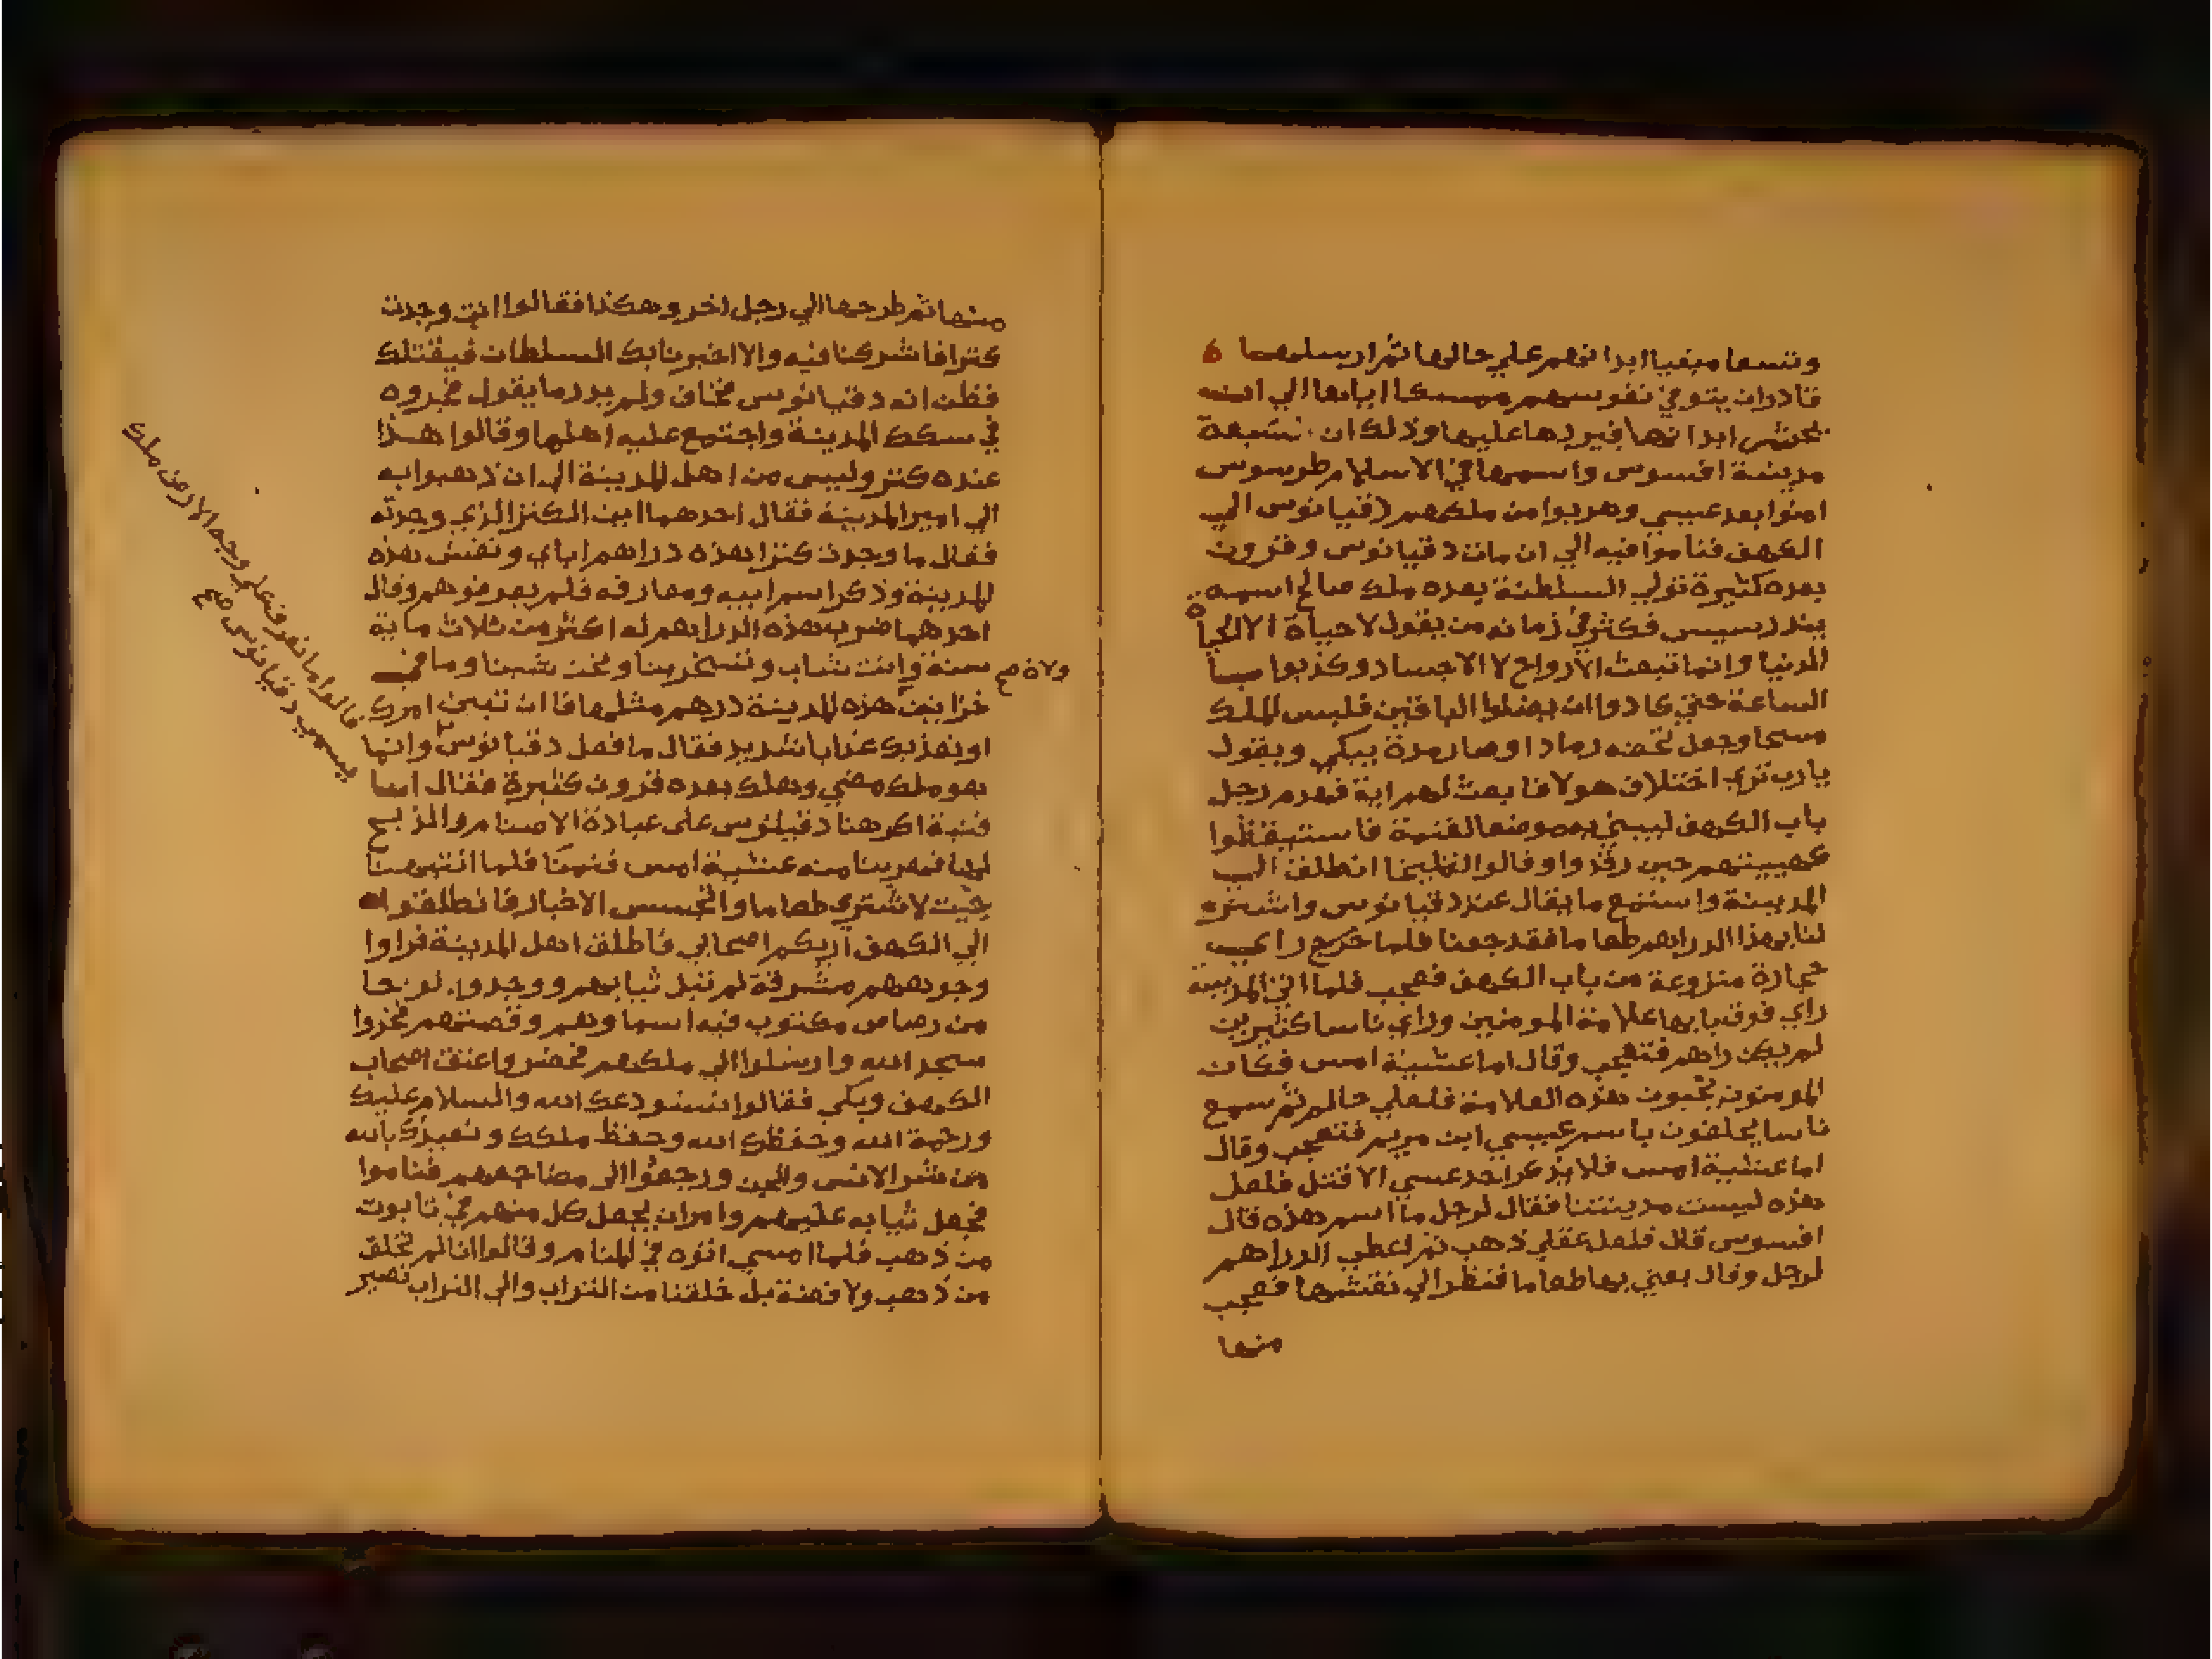 وتسعا مبقيا ابدانهم على حالها ثم ارسلها ه
قادران يتوفي نفوسهم ممسكا اياها الي ان
يحشر ابدانها فيردها عليها وذلك ان سبعة
مدينة افسوس واسمها في الاسلام طرسوس
امنوا بعد عيسي وهربوا من ملكهم دقيانوس الي
الكهف فناموا فيه الي ان مات دقيانوس وقرون
بعده كثيرة تولي السلطنة بعده ملك صالح اسمه
بيندرسيس فكثر في زمانه من يقول لا حياة الا الحياة
الدنيا وانما تبعث الارواح لا الاجساد وكذبوا
الساعة حتي كادوا ان يضلوا الباقين فلبس الملك
مسحا وجعل تحته رمادا وصار مدة يبكي ويقول
يارب تري اختلاف هولا فابعث لهم اية فهدم رجل
باب الكهف ليبني به موضعا لغنمه فاستيقظوا
كهيينتهم حين رقدوا وقالوا لتمليخا انطلق الي
المدينة واستمع ما يقال عند دقيانوس واشتري
لنا بهذا الدراهم طعاما فقد جعنا فلما خرج راي
حجارة منزوعة من باب الكهف فعجب فلما اتي المدينة
راي فوق بابها علامة المومنين وراي ناسا كثيرين
لم يكن راهم فتعجب وقال اما عشية امس فكان
المومنون يخبون هذه العلامة فلعلي حالم ثم سمع
ناسا يحلفون باسم عيسي ابن مريم فتعجب وقال
اما عشية امس فلا يذكر احد عيسي الا قتل فلعل
هذه ليست مدينتنا فقال لرجل ما اسم هذه قال
افسوس قال فلعل عقلي ذهب ثم اعطي الدراهم
لرجل وقال بعني بها طعاما فنظر الي نقشها فعجب
منها
منها ثم طرحها الي رجل اخر وهكذا فقالوا انت وجدت
كنزا فاشركنا فيه والا اخبرنا بك السلطان فيقتلك
فظن انه دقيانوس فخاف ولم يدر ما يقول فجروه
في سكك المدينة واجتمع عليه اهلها وقالوا هذا
عنده كنز وليس من اهل المدينة الي ان ذهبوا به
الي امير المدينة فقال احدهما اين الكنز الذي وجدته
فقال ما وجدت كنزا هذه دراهم اباي ونقش هذه
المدينة وذكر اسم ابيه ومعارفه فلم يعرفوهم وقال
احدهما ضرب هذه الدراهم له اكثر من ثلاث ماية
سنة وانت شاب وتسخر بنا ونحن شبنا وما في
ولاة صح
خزاين هذه المدينة درهم مثلها فاان تبين امرك
او نعذبك عذابا شديد فقال ما فعل دقيانوس وانما
قالوا ما نعرف علي وجه الارض ملك
يسمي دقيانوس صح
هو ملك مضي وهلك بعده قرون كثيرة فقال انما
فتية اكرهنا دقيانوس علي عبادة الاصنام والذبح
لها فهربنا منه عشية امس فنمنا فلما انتبهنا
جيت لاشتري طعاما واتجسس الاخبار فانطلقوا
الي الكهف اريكم اصحابي فاطلق اهل المدينة فراوا
وجوههم مشرقة لم تبل ثيابهم ووجدوا لوحا
من رصاص مكتوب فيه اسماوهم وقصتهم فخروا
سجد الله وارسلوا الي ملكهم فحضر واعتنق اصحاب
الكهف وبكي فقالوا نستودعك الله والسلام عليك
ورحمة الله وحفظك الله وحفظ ملكك ونعيذك بالله
من شر الانس والجن ورجعوا الي مضاجعهم فناموا
فجعل ثيابه عليهم وامر ان يجعل كل منهم في تابوت
من ذهب فلما امسي اتوه في المنام وقالوا انا لم نخلق
من ذهب ولا فضة بل خلقنا من التراب والي التراب نصير